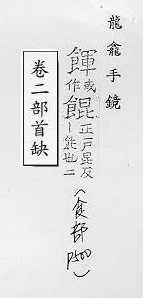 龍龕手鏡
餫或作餛正戶昆反丨飩也二(食部 P500)
卷二部首缺